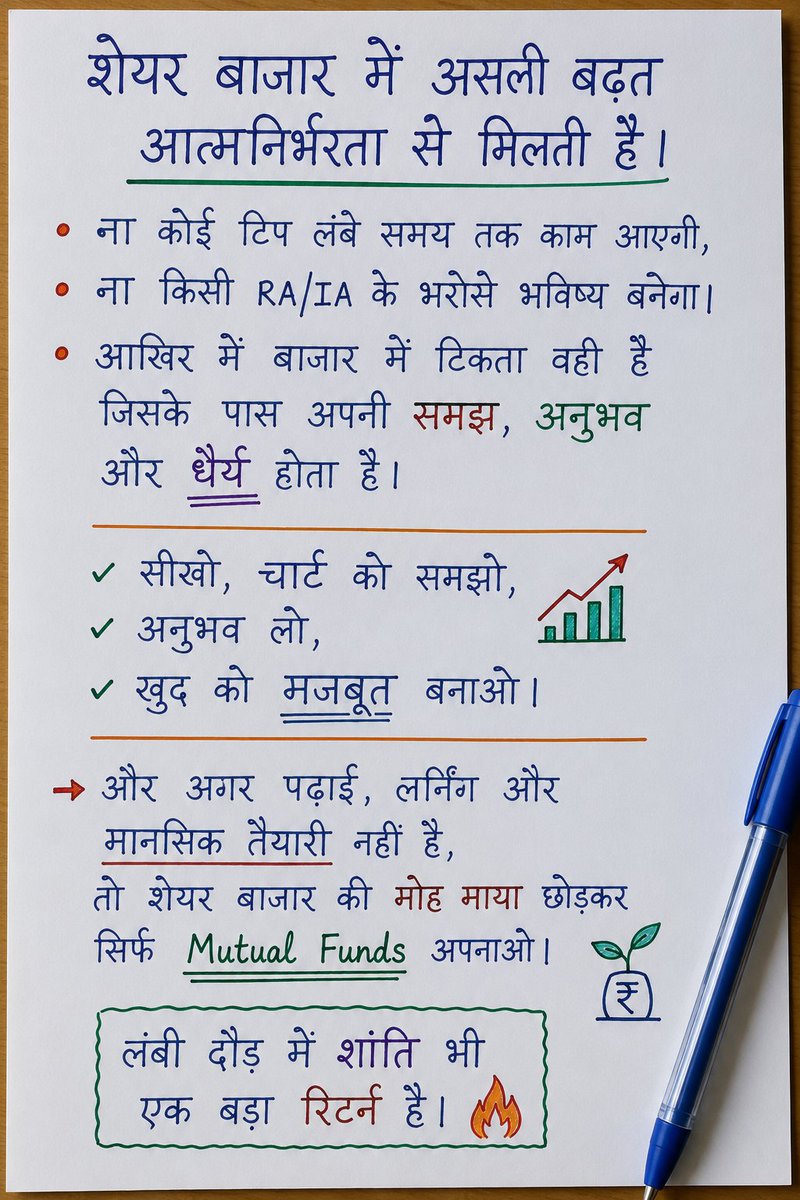 शेयर बाजार में असली बढ़त
आत्मनिर्भरता से मिलती है।
• ना कोई टिप लंबे समय तक काम आएगी,
• ना किसी RA/IA के भरोसे भविष्य बनेगा।
• आखिर में बाजार में टिकता वही है
जिसके पास अपनी समझ, अनुभव
और धैर्य होता है।
✓ सीखो, चार्ट को समझो,
✓ अनुभव लो,
✓ खुद को मजबूत बनाओ।
→ और अगर पढ़ाई, लर्निंग और
मानसिक तैयारी नहीं है,
तो शेयर बाजार की मोह माया छोड़कर
सिर्फ Mutual Funds अपनाओ।
₹
लंबी दौड़ में शांति भी
एक बड़ा रिटर्न है।